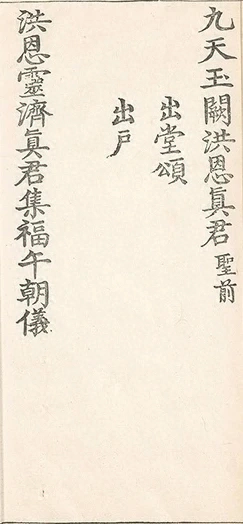 九天玉闕洪恩眞君聖前
出堂頌
出戶
洪恩靈濟眞君集福午朝儀